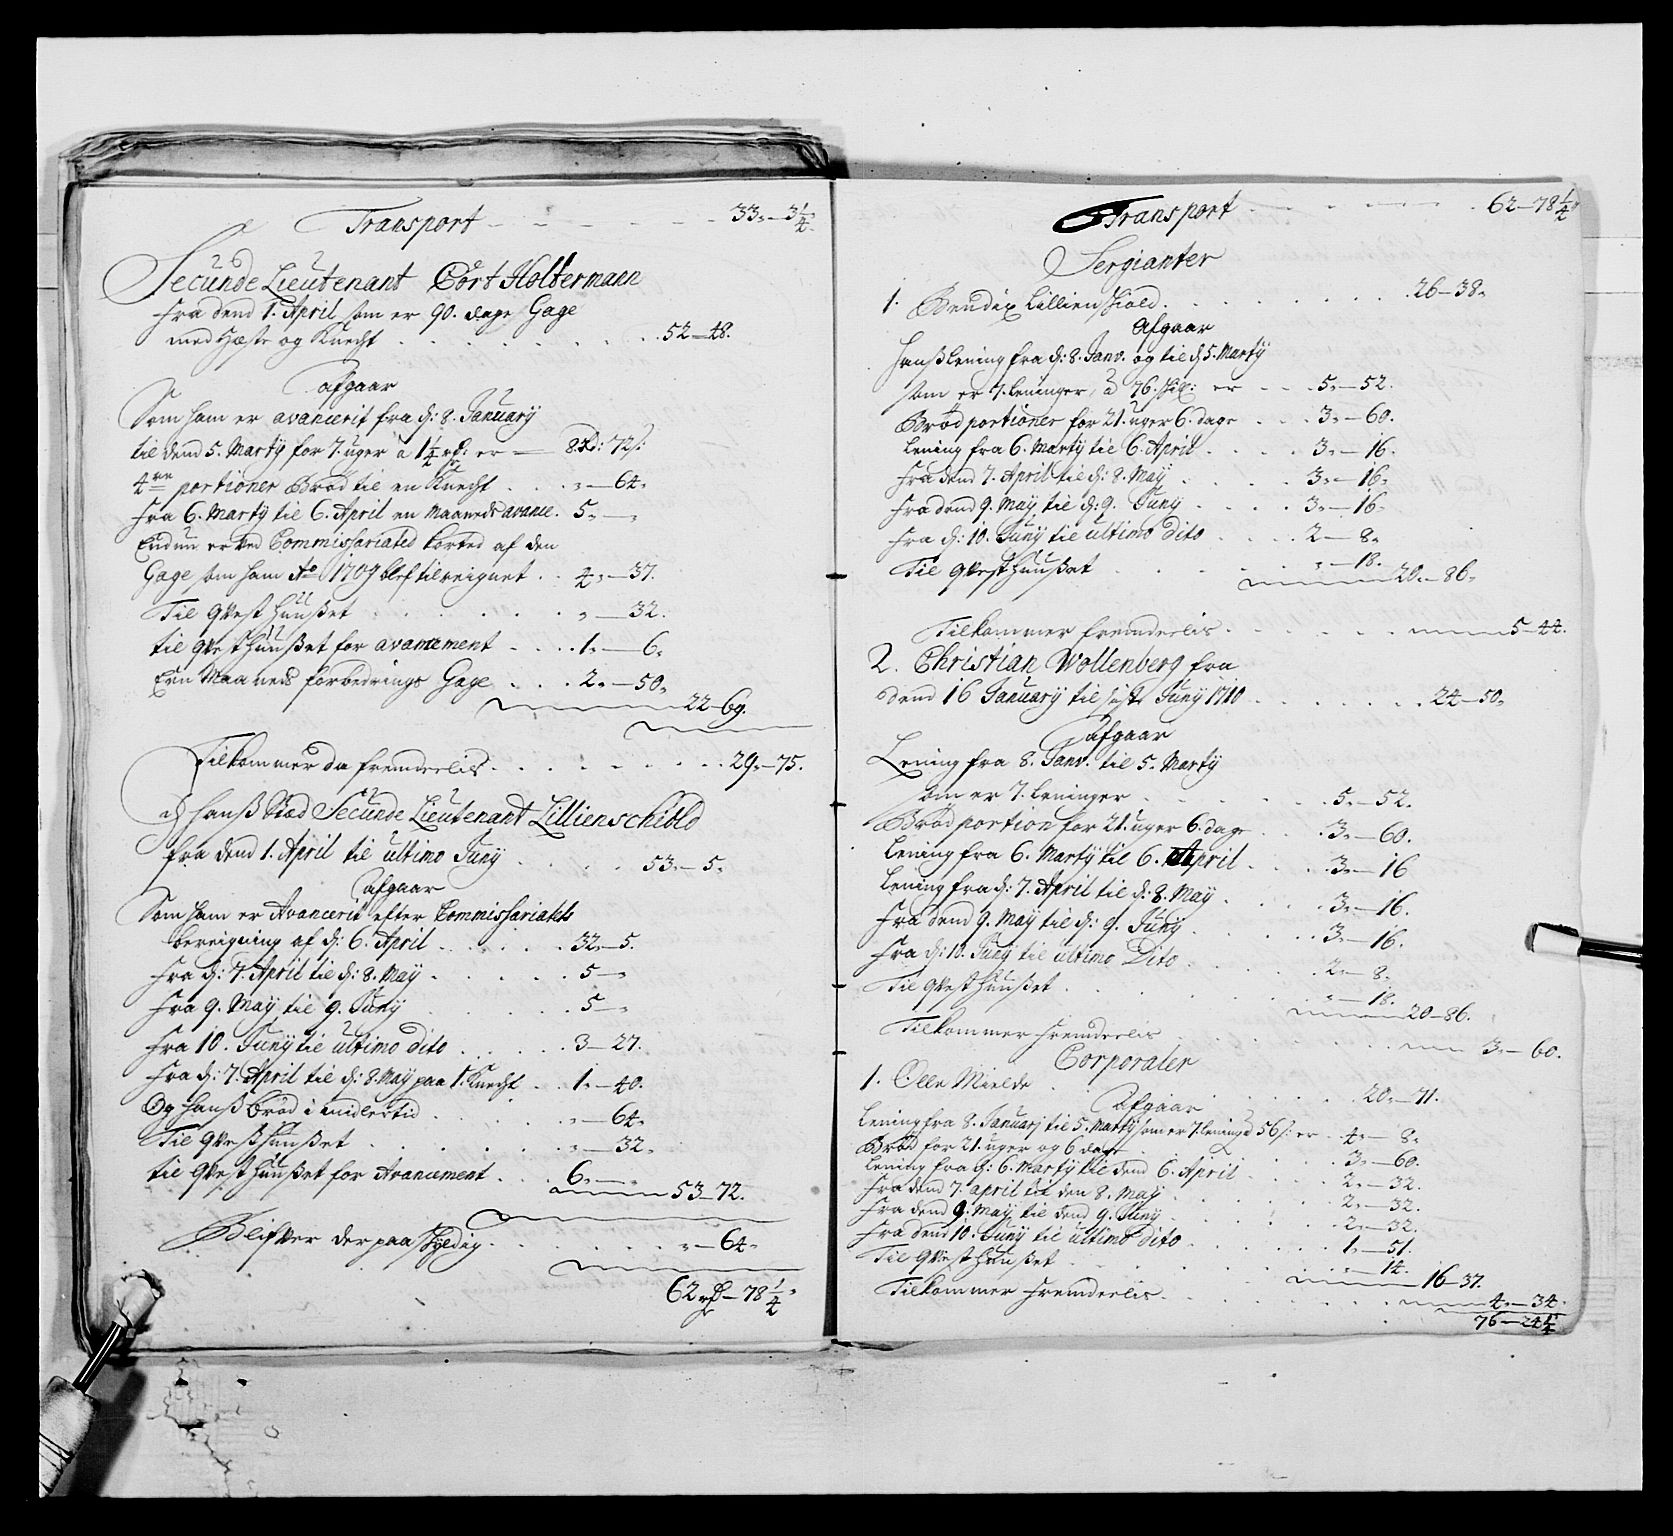 Transport - - - - - 33.-3¼.
Secunde Lieutenant Cort Holtermann
fra dend 1. April som er 90. dage Gage
med Hæste og Knecht . . . 52-48.
afgaar
Som ham er avancerit fra d: 8. January
til dend 5. Marty for 7. uger a 1¼ rd: er — 8 Rd: 72 s:
4re portioner Brød til en Knecht . . . "-64.
fra 6. Marty til 6. April en Maaneds avance. 5.-"
Endnu er ved Commissariated korted af den
Gage som ham Ao 1709 blef tilreignet . . 4.-37.
Til Qvesthuuset . . . "-32.
til Qvesthuuset for avancement . . . 1.-6.
Een Maaneds forbedrings Gage . . . 2.-50.
22-69.
Tilkommer da fremdeelis . . . 29.-75.
I hanß Stæd Secunde Lieutenant Lillienschiold
fra dend 1. April til ultimo Juny . . . 53.-5.
afgaar
Som ham er Avancerit efter Commissariatets
bereigning af d: 6. April . . . 32.-5.
fra d: 7. April til d: 8. May . . . 5-"
fra 9. May til 9. Juny . . . 5-"
fra 10. Juny til ultimo dito . . . 3-27.
fra d: 7. April til d: 8. May paa 1. Knecht . . 1.-40.
Og hanß brød i midlertid . . . "-64.
Til Qvesthuuset . . . "-32.
til Qvesthuuset for Avancement . . . 6.-"
53-72.
Blifver der paa skyldig . . . "-64.
62 rd-78¼.
Transport - - - - - 62-78¼
Sergianter
1. Bendix Lillienschiold . . . 26-38.
Afgaar
hanß lening fra d: 8. Janv. og til d 5. Marty
som er 7. leninger, a 76. skil: er . . . 5.-52.
Brød portioner for 21. uger 6. dage . . . 3.-60.
lening fra 6. Marty til 6. April . . . 3.-16.
fra dend 7. April til d: 8. May . . . 3.-16.
fra dend 9. May til d: 9. Juny . . . 3.-16.
fra d: 10. Juny til ultimo dito . . . 2-8.
Til Qvesthuuset . . . "-18.
20.-86.
Tilkommer fremdeelis . . . 5-44.
2. Christian Wollenberg fra
dend 16 January til sidste Juny 1710 . . . 24-50.
afgaar
Lening fra 8. Janv. til 5. Marty
som er 7. leninger . . . 5.-52.
Brød portion for 21. uger 6. dage . . . 3.-60.
lening fra 6. Marty til 6. April . . . 3.-16
lening fra d: 7. April til d: 8. May . . . 3.-16.
fra dend 9. May til d: 9. Juny . . . 3.-16.
fra d: 10. Juny til ultimo Dito . . . 2-8.
Til Qvesthuuset . . . "-18.
20-86.
Tilkommer fremdeelis . . . 3.-60.
Corporaler
1. Olle Mielde . . . 20.-71.
Afgaar
lening fra 8. January til 5. Marty som er 7. lening a 56 s: er . 4.-8.
Brød for 21. uger og 6 dage . . . 3.-60.
lening fra d: 6. Marty til dend 6. April . . . 2.-32.
fra dend 7. april til den 8. May . . . 2.-32.
fra dend 9. May til dend 9. Juny . . . 2.-32.
fra dend 10. Juny til ultimo dito . . . 1.-51.
Til Qvesthuuset . . . "-14.
16-37.
Tilkommer fremdeelis . . . 4.-34.
76-24¼